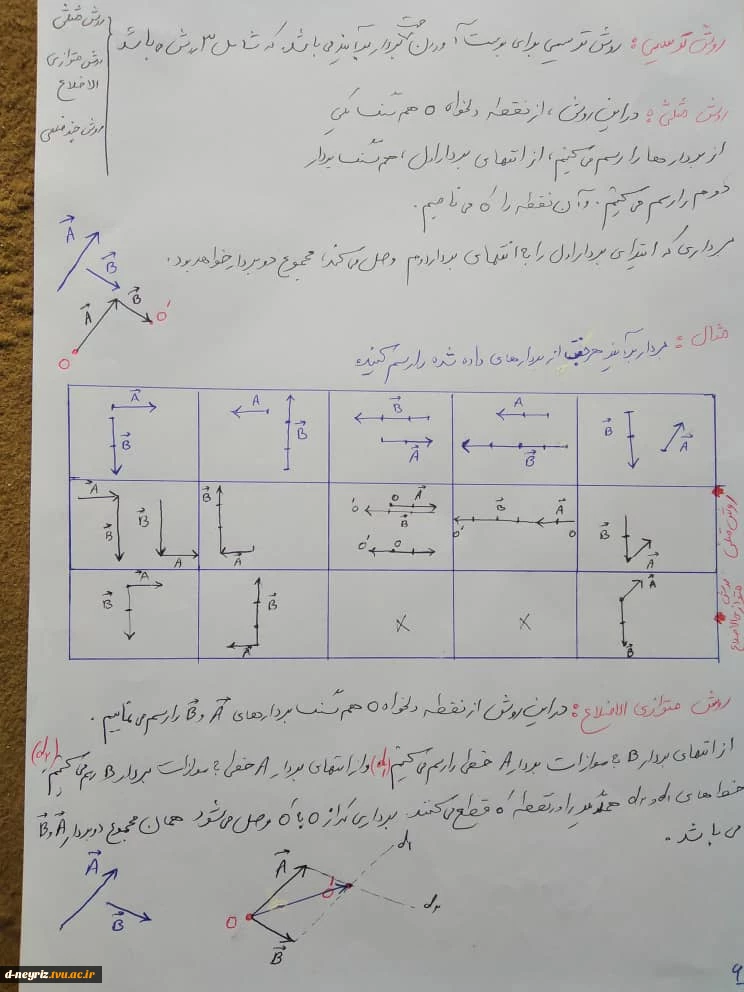 روش ترسیمی : روش ترسیمی برای بدست آوردن جهت بردار برآیند می باشد. که شامل ۳ روش ه باشد
روش مثلثی
روش متوازی
الاضلاع
روش چند ضلعی
روش مثلثی : در این روش ، از نقطه دلخواه O هم سنگ یکی
از بردارها را رسم می کنیم، از انتهای بردار اول ، هم سنگ بردار
دوم را رسم می کنیم. و آن نقطه را O' می نامیم.
برداری که ابتدای بردار اول را به انتهای بردار دوم وصل می کند، مجموع دو بردار خواهد بود.
A B
A B O'
O
مثال : بردار برآیند هر جفت از بردارهای داده شده را رسم کنید.
A B
A B
B A
A B
B A
روش مثلثی
A B B A
B A
O A O' B
O' O
A B O' O
B A
روش متوازی الاضلاع
A B
B A
X
X
A B
روش متوازی الاضلاع : در این روش از نقطه دلخواه O هم سنگ بردارهای A و B را رسم می نماییم.
از انتهای بردار B به موازات بردار A خطی را رسم می کنیم (d₁) و از انتهای بردار A خطی به موازات بردار B رسم می کنیم (d₂)
خط های d₁ و d₂ همدیگر را در نقطه O' قطع می کنند. برداری که از O به O' وصل می شود همان مجموع دو بردار A و B
می باشد.
A B
A O' O B d₁ d₂
۹
d-neyriz.tvu.ac.ir